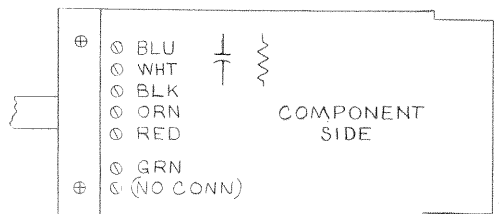 BLU
WHT
BLK
ORN
RED
GRN
(NO CONN)
COMPONENT
SIDE